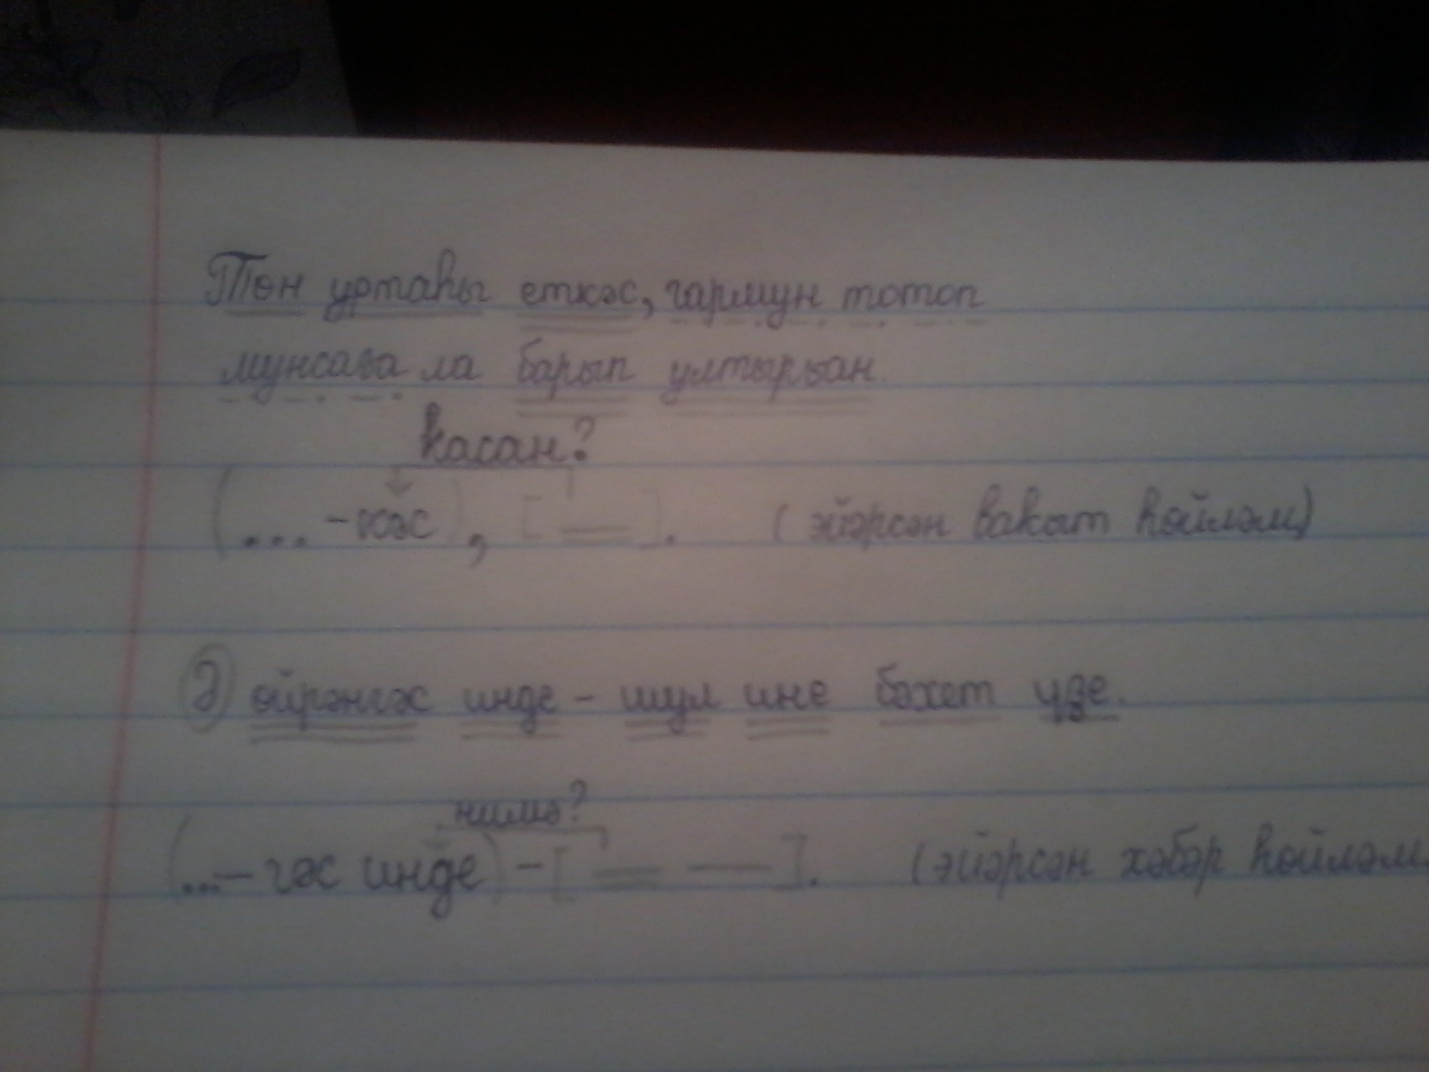 Төн уртаһы еткәс, гармун тотоп
мунсаға ла барып ултырған.
Ҡасан?
(... -кәс), [ - = ]. (эйәрсән ваҡыт һөйләм)
Ә өйрәнгәс инде – шул ине бәхет үҙе.
нимә?
(...– гәс инде) – [ = — ]. (эйәрсән хәбәр һөйләм.